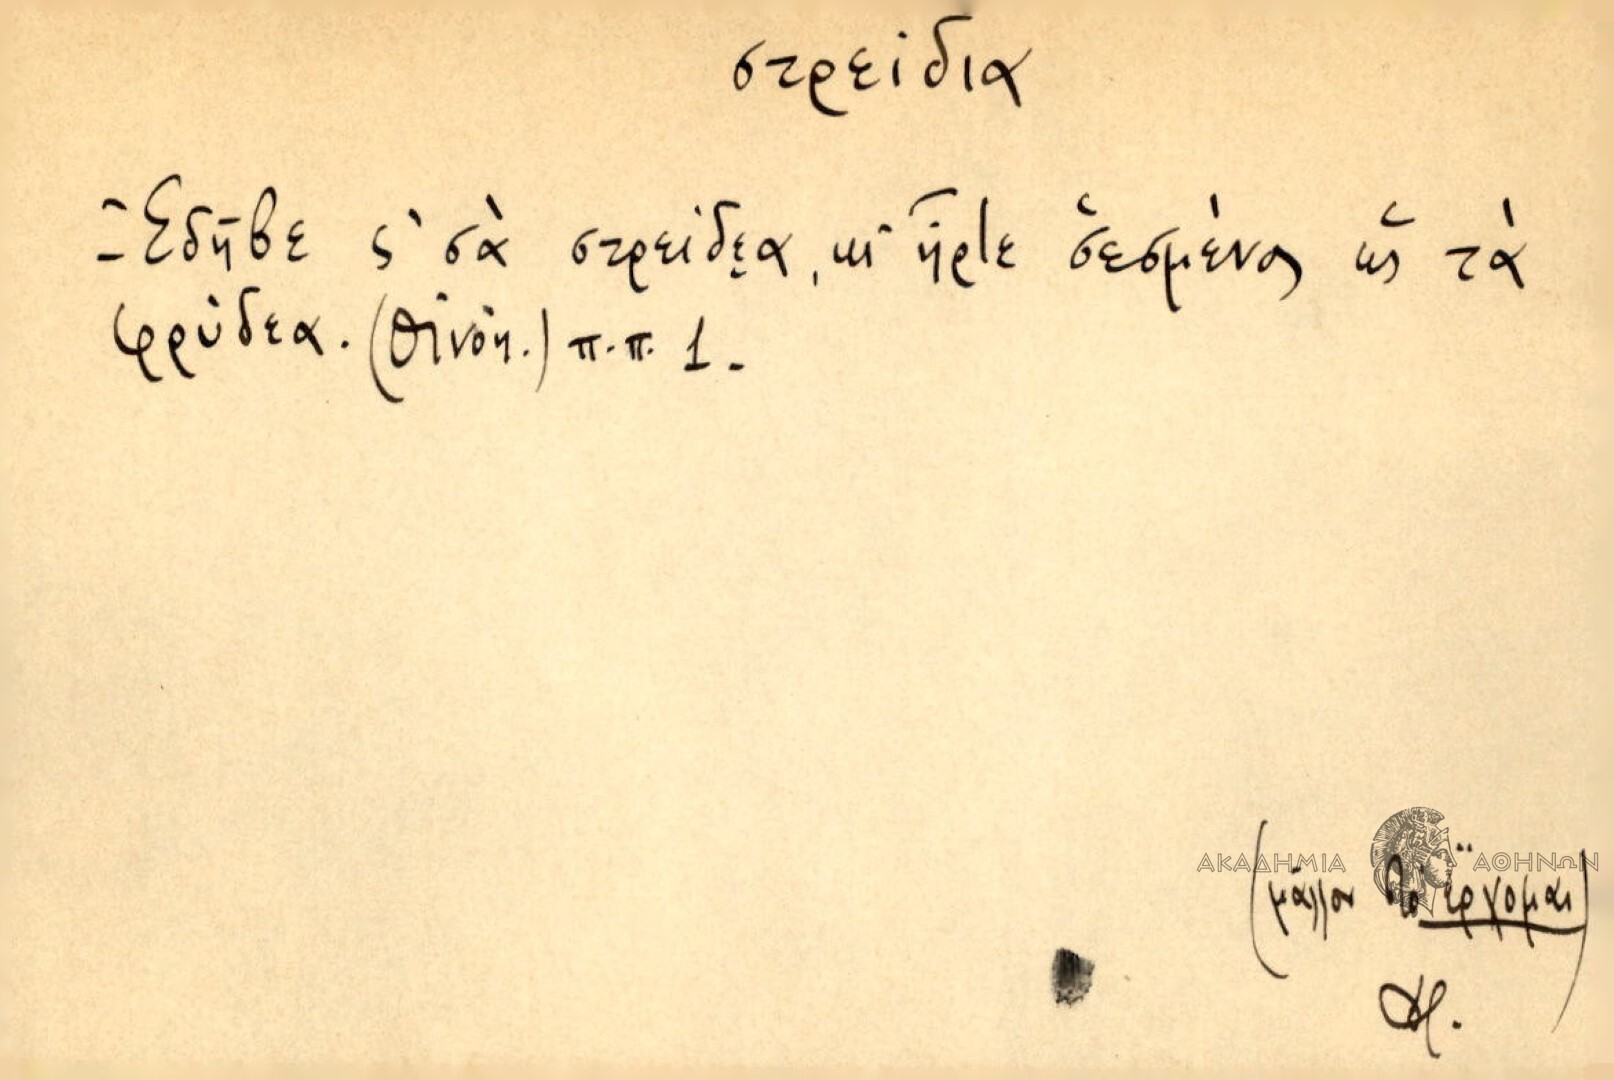 στρείδια
- Ἐδῆβε ς' σὰ στρείδε̯α, κι' ἦρτε δ̌εσμένος ὥς τὰ
φρύδεα. (Οἰνόη.) π.π. 1.-
ΑΚΑΔΗΜΙΑ ΑΘΗΝΩΝ
(μᾶλλον ἔρχομαι)